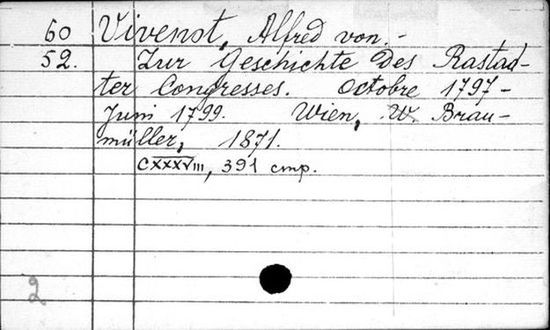 60 Vivenot, Alfred von.-
52. Zur Geschichte des Rastad-
ter Congresses. Octobre 1797 -
Juni 1799. Wien, W. Brau-
müller, 1871.
CXXXVIII, 391 стр.
2